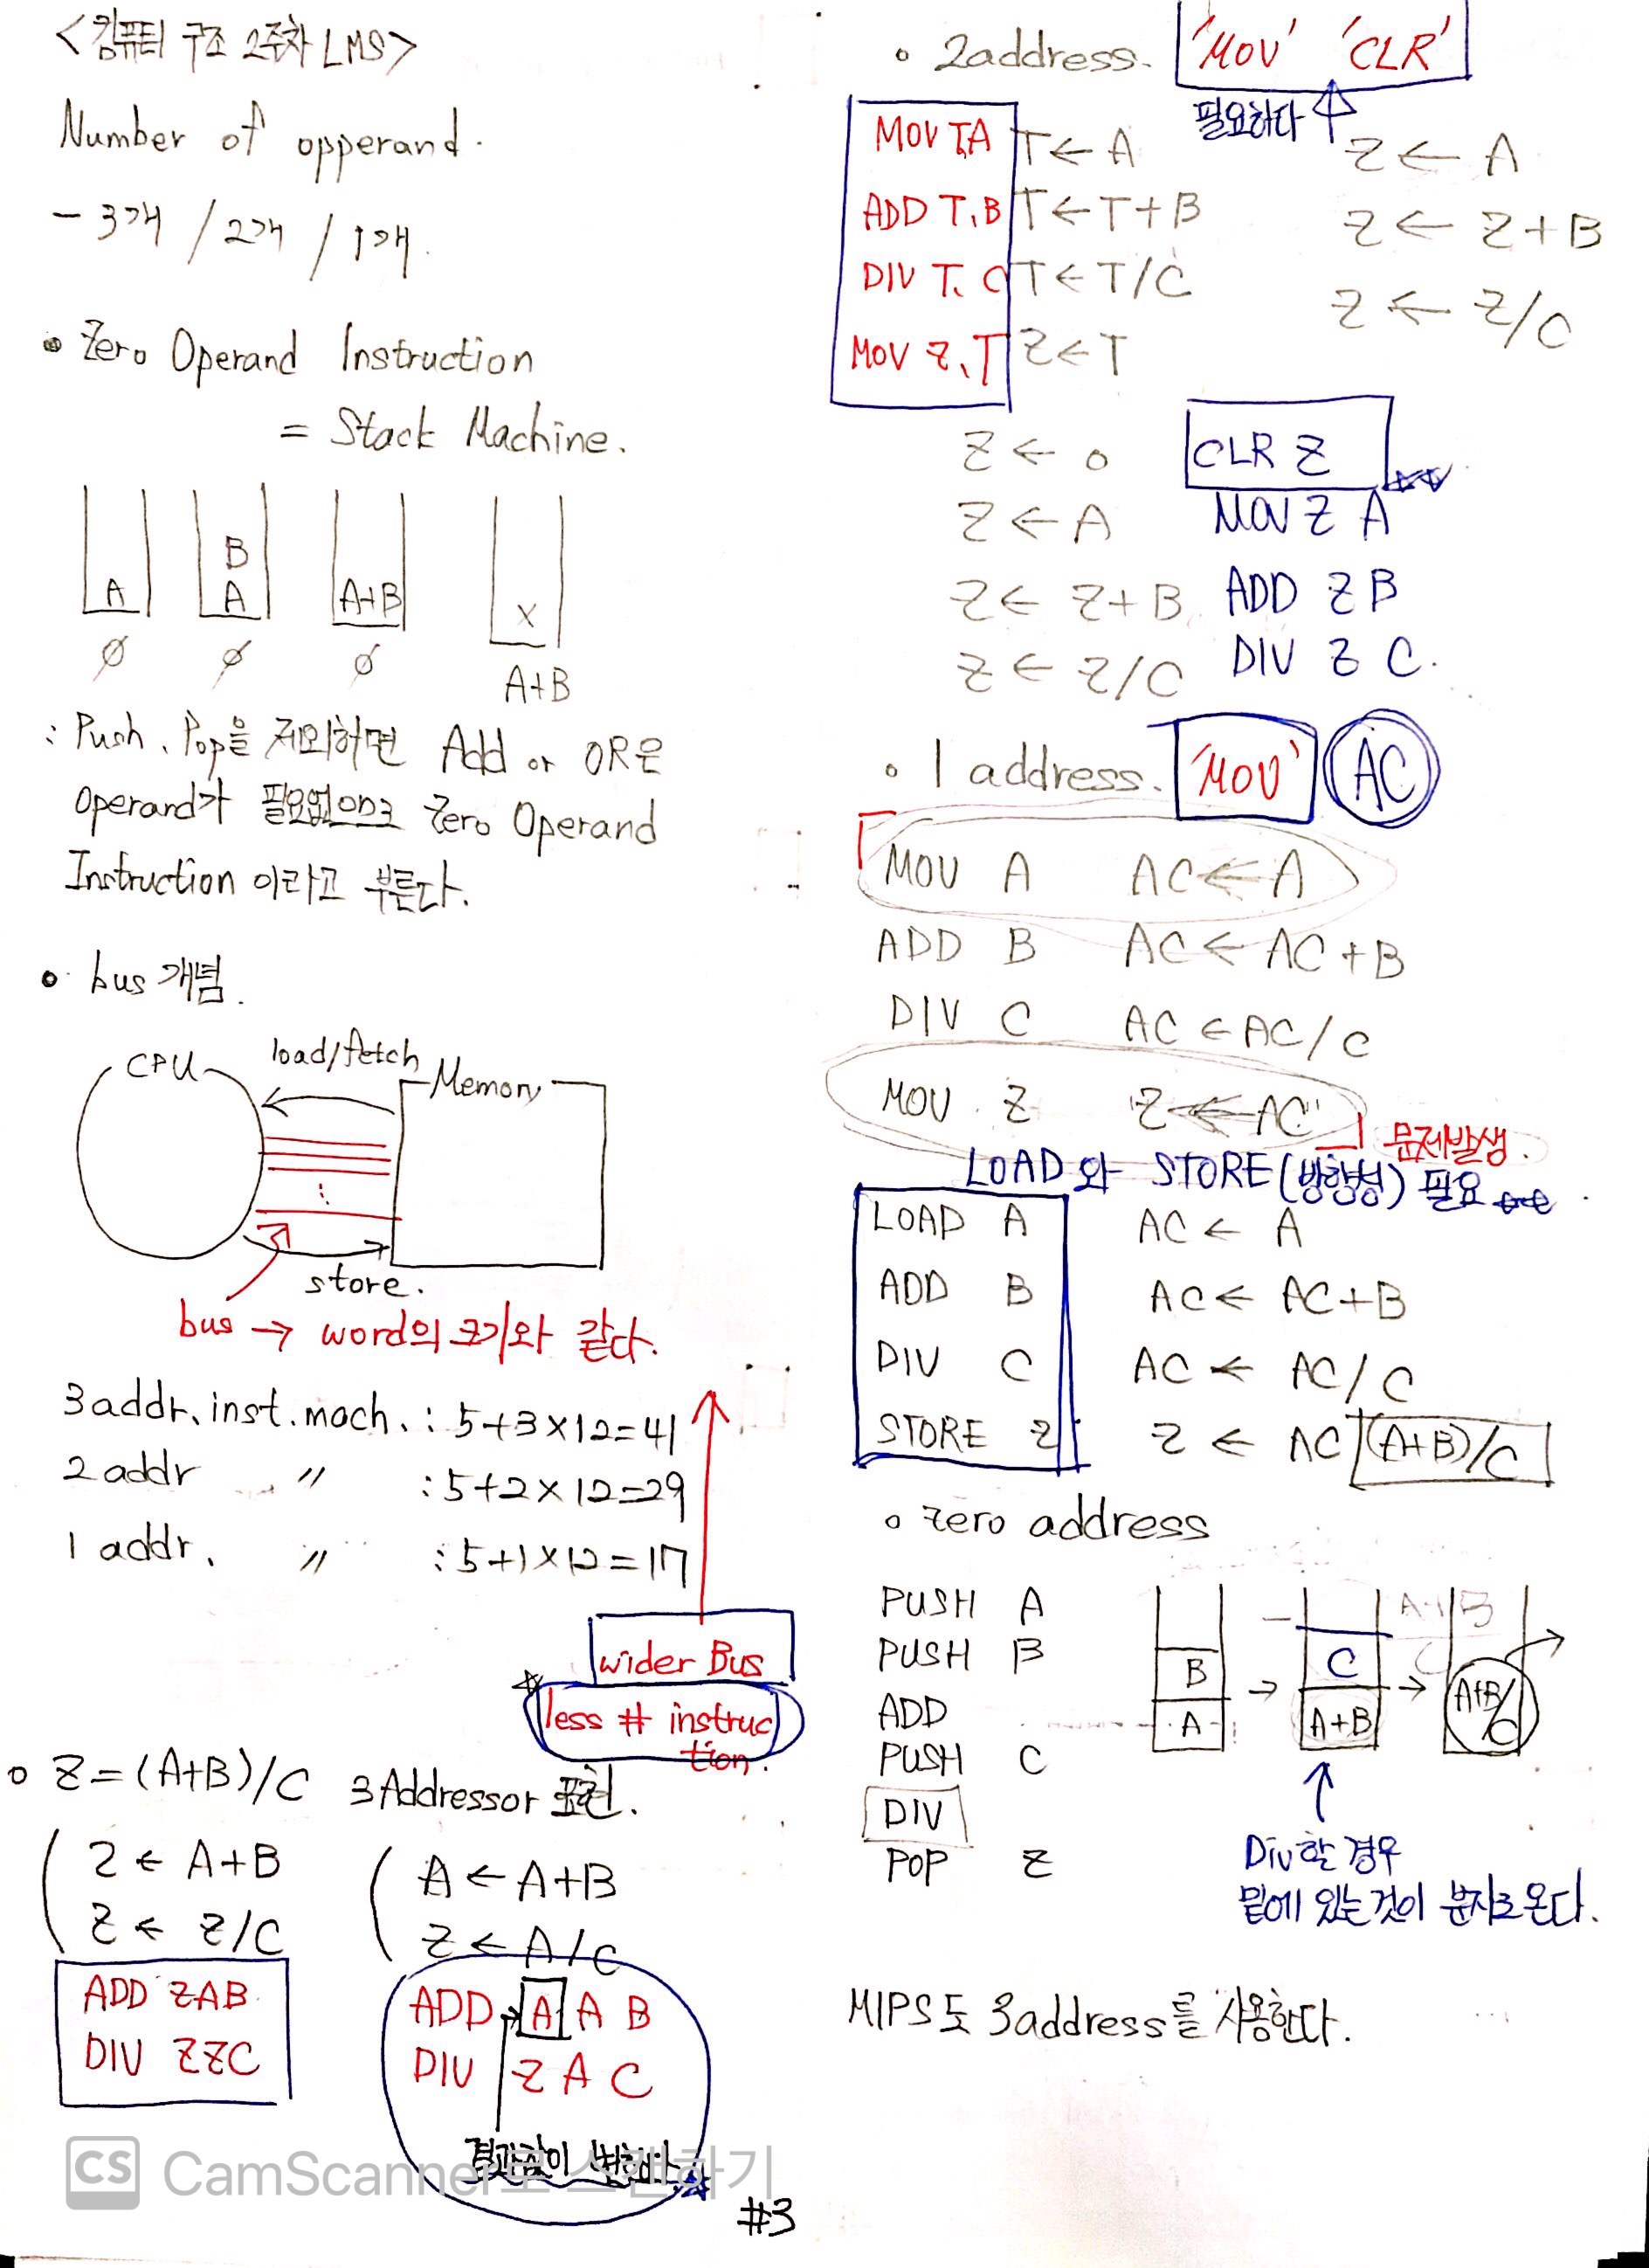 <컴퓨터 구조 2주차 LMS>
Number of opperand.
- 3개 / 2개 / 1개.
• Zero Operand Instruction
= Stack Machine.
A
B
A
A+B
X
∅ ∅ ∅ A+B
: Push, Pop을 제외하면 Add or OR은
operand가 필요없으므로 Zero Operand
Instruction 이라고 부른다.
• bus 개념.
CPU
load/fetch
Memory
store.
bus → word의 크기와 같다.
3 addr. inst. mach. : 5+3×12=41
2 addr 〃 : 5+2×12=29
1 addr. 〃 : 5+1×12=17
wider Bus
less # instruc
tion.
∘ Z=(A+B)/C 3 Addressor 표현.
Z ← A+B
Z ← Z/C
ADD ZAB
DIV ZZC
A ← A+B
Z ← A/C
ADD A A B
DIV Z A C
결과값이 변한다
CS CamScanner로 스캔하기
#3
∘ 2address. 'MOV' 'CLR'
필요하다
MOV T,A T←A
ADD T,B T←T+B
DIV T, C T←T/C
MOV Z,T Z←T
Z ← A
Z ← Z+B
Z ← Z/C
Z ← 0 CLR Z
Z ← A MOV Z A
Z ← Z+B ADD Z B
Z ← Z/C DIV Z C.
∘ 1 address. 'MOV' AC
MOV A AC ← A
ADD B AC ← AC+B
DIV C AC ← AC/C
MOV Z Z ← AC
문제발생.
LOAD 와 STORE (방향성) 필요
LOAD A AC ← A
ADD B AC ← AC+B
DIV C AC ← AC/C
STORE Z Z ← AC (A+B)/C
∘ zero address
PUSH A
PUSH B
ADD
PUSH C
DIV
POP Z
B
A
→
C
A+B
→
A+B/C
Div할 경우
밑에 있는것이 분자로 온다.
MIPS도 3address를 사용한다.